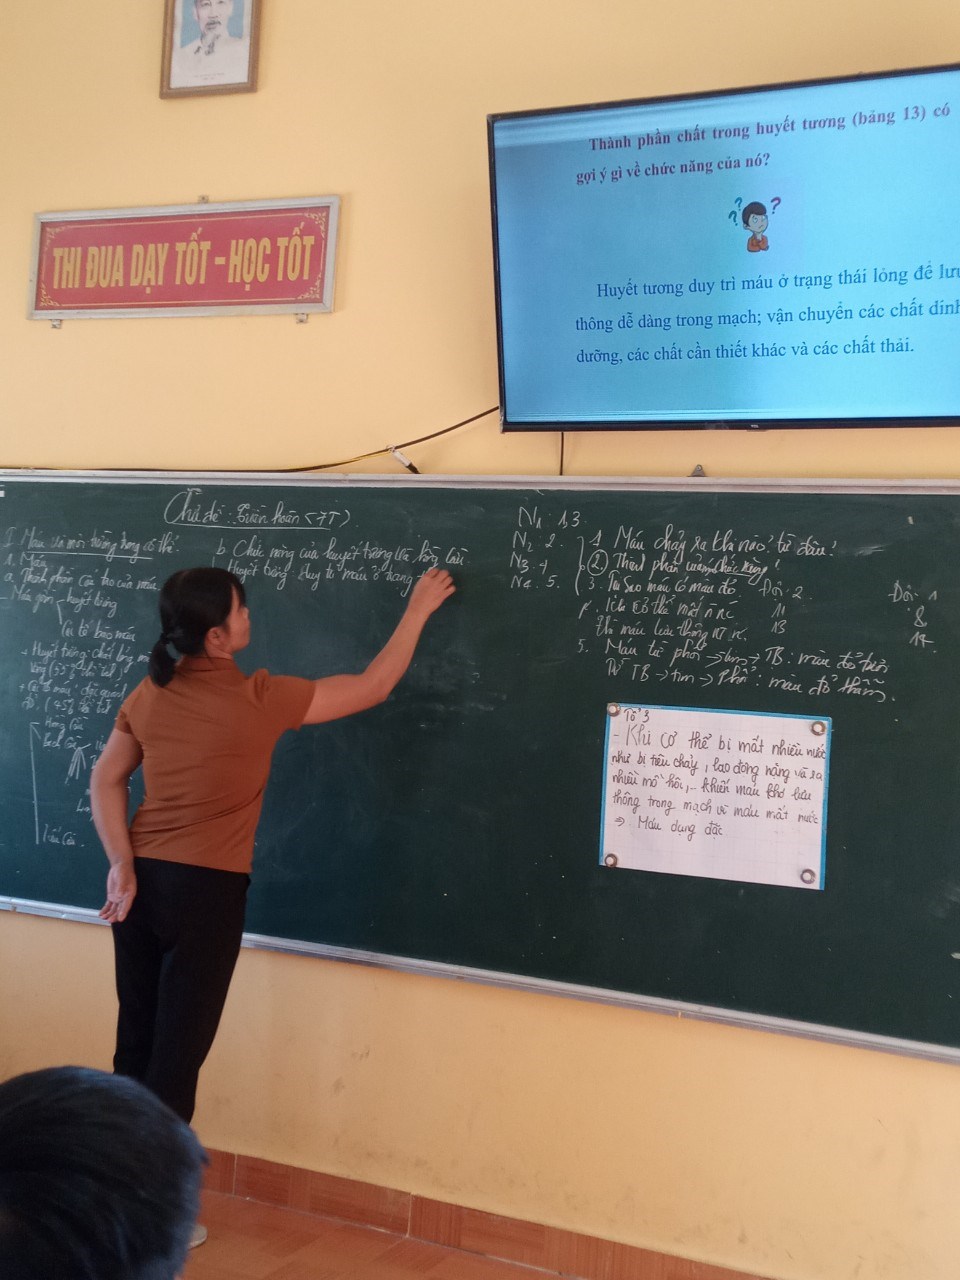 Thành phần chất trong huyết tương (bảng 13) có
gợi ý gì về chức năng của nó?
Huyết tương duy trì máu ở trạng thái lỏng để lưu
thông dễ dàng trong mạch; vận chuyển các chất dinh
dưỡng, các chất cần thiết khác và các chất thải.
THI ĐUA DẠY TỐT - HỌC TỐT
TCL
Chủ đề: Tuần hoàn (7T)
I. Máu và môi trường trong cơ thể
1. Máu
a. Thành phần cấu tạo của máu
- Máu gồm huyết tương
Các tế bào máu
+ Huyết tương: chất lỏng
vàng (55% thể tích)
+ Các tế bào máu: đặc quánh
đỏ. (45% thể tích
Hồng cầu
Bạch cầu
Tiểu cầu
b. Chức năng của huyết tương và hồng cầu
- Huyết tương: duy trì máu ở trạng
N1: 13
N2: 2
N3: 4
N4: 5.
1. Máu chảy ra thế nào? từ đâu?
2. Thành phần chức năng?
3. Tại sao máu có màu đỏ.
Đội: 2
11
13
Đội: 1
8
17
cơ thể mất n nc
Thì máu lưu thông ntn.
5. Máu từ phổi → tim → TB: màu đỏ tươi
Từ TB → tim → phổi: màu đỏ thẫm.
Tổ 3
- Khi cơ thể bị mất nhiều nước
như bị tiêu chảy, lao động nặng và ra
nhiều mồ hôi,.. khiến máu khó lưu
thông trong mạch vì máu mất nước
⇒ Máu dạng đặc